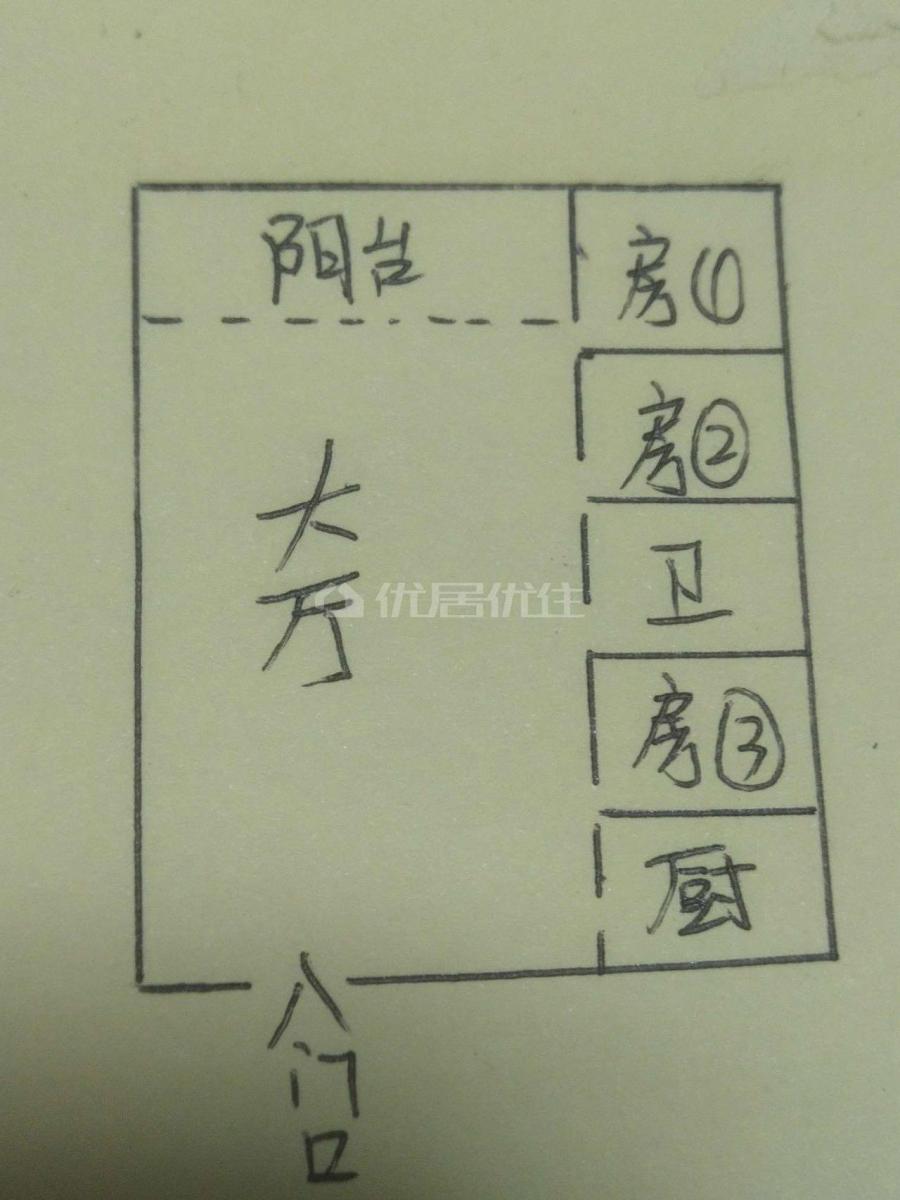 阳台
房①
房②
大厅
优居优住
卫
房③
厨
入门口